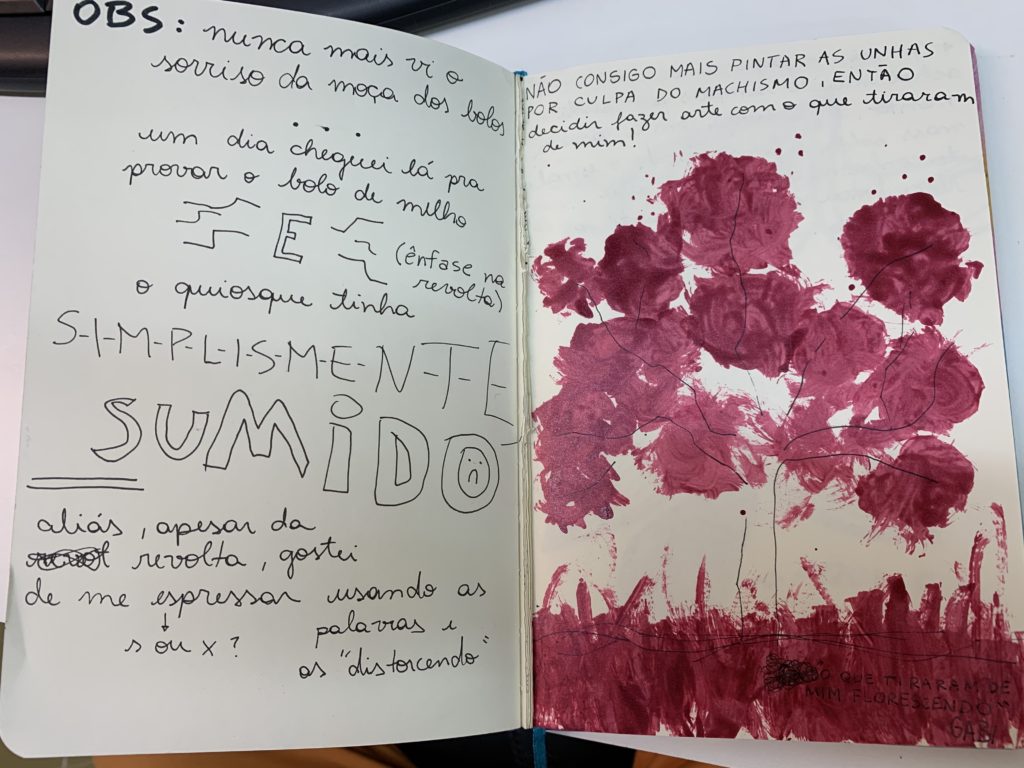 OBS: nunca mais vi o
sorriso da moça dos bolos
...
um dia cheguei lá pra
provar o bolo de milho
E (ênfase na
revolta)
o quiosque tinha
S-I-M-P-L-I-S-M-E-N-T-E
SUMIDO
aliás, apesar da
revolta, gostei
de me espressar usando as
s ou x? palavras e
as "distorcendo"
NÃO CONSIGO MAIS PINTAR AS UNHAS
POR CULPA DO MACHISMO, ENTÃO
decidir fazer arte com o que tiraram
de mim!
O QUE TIRARAM DE
MIM FLORESCENDO
GABI